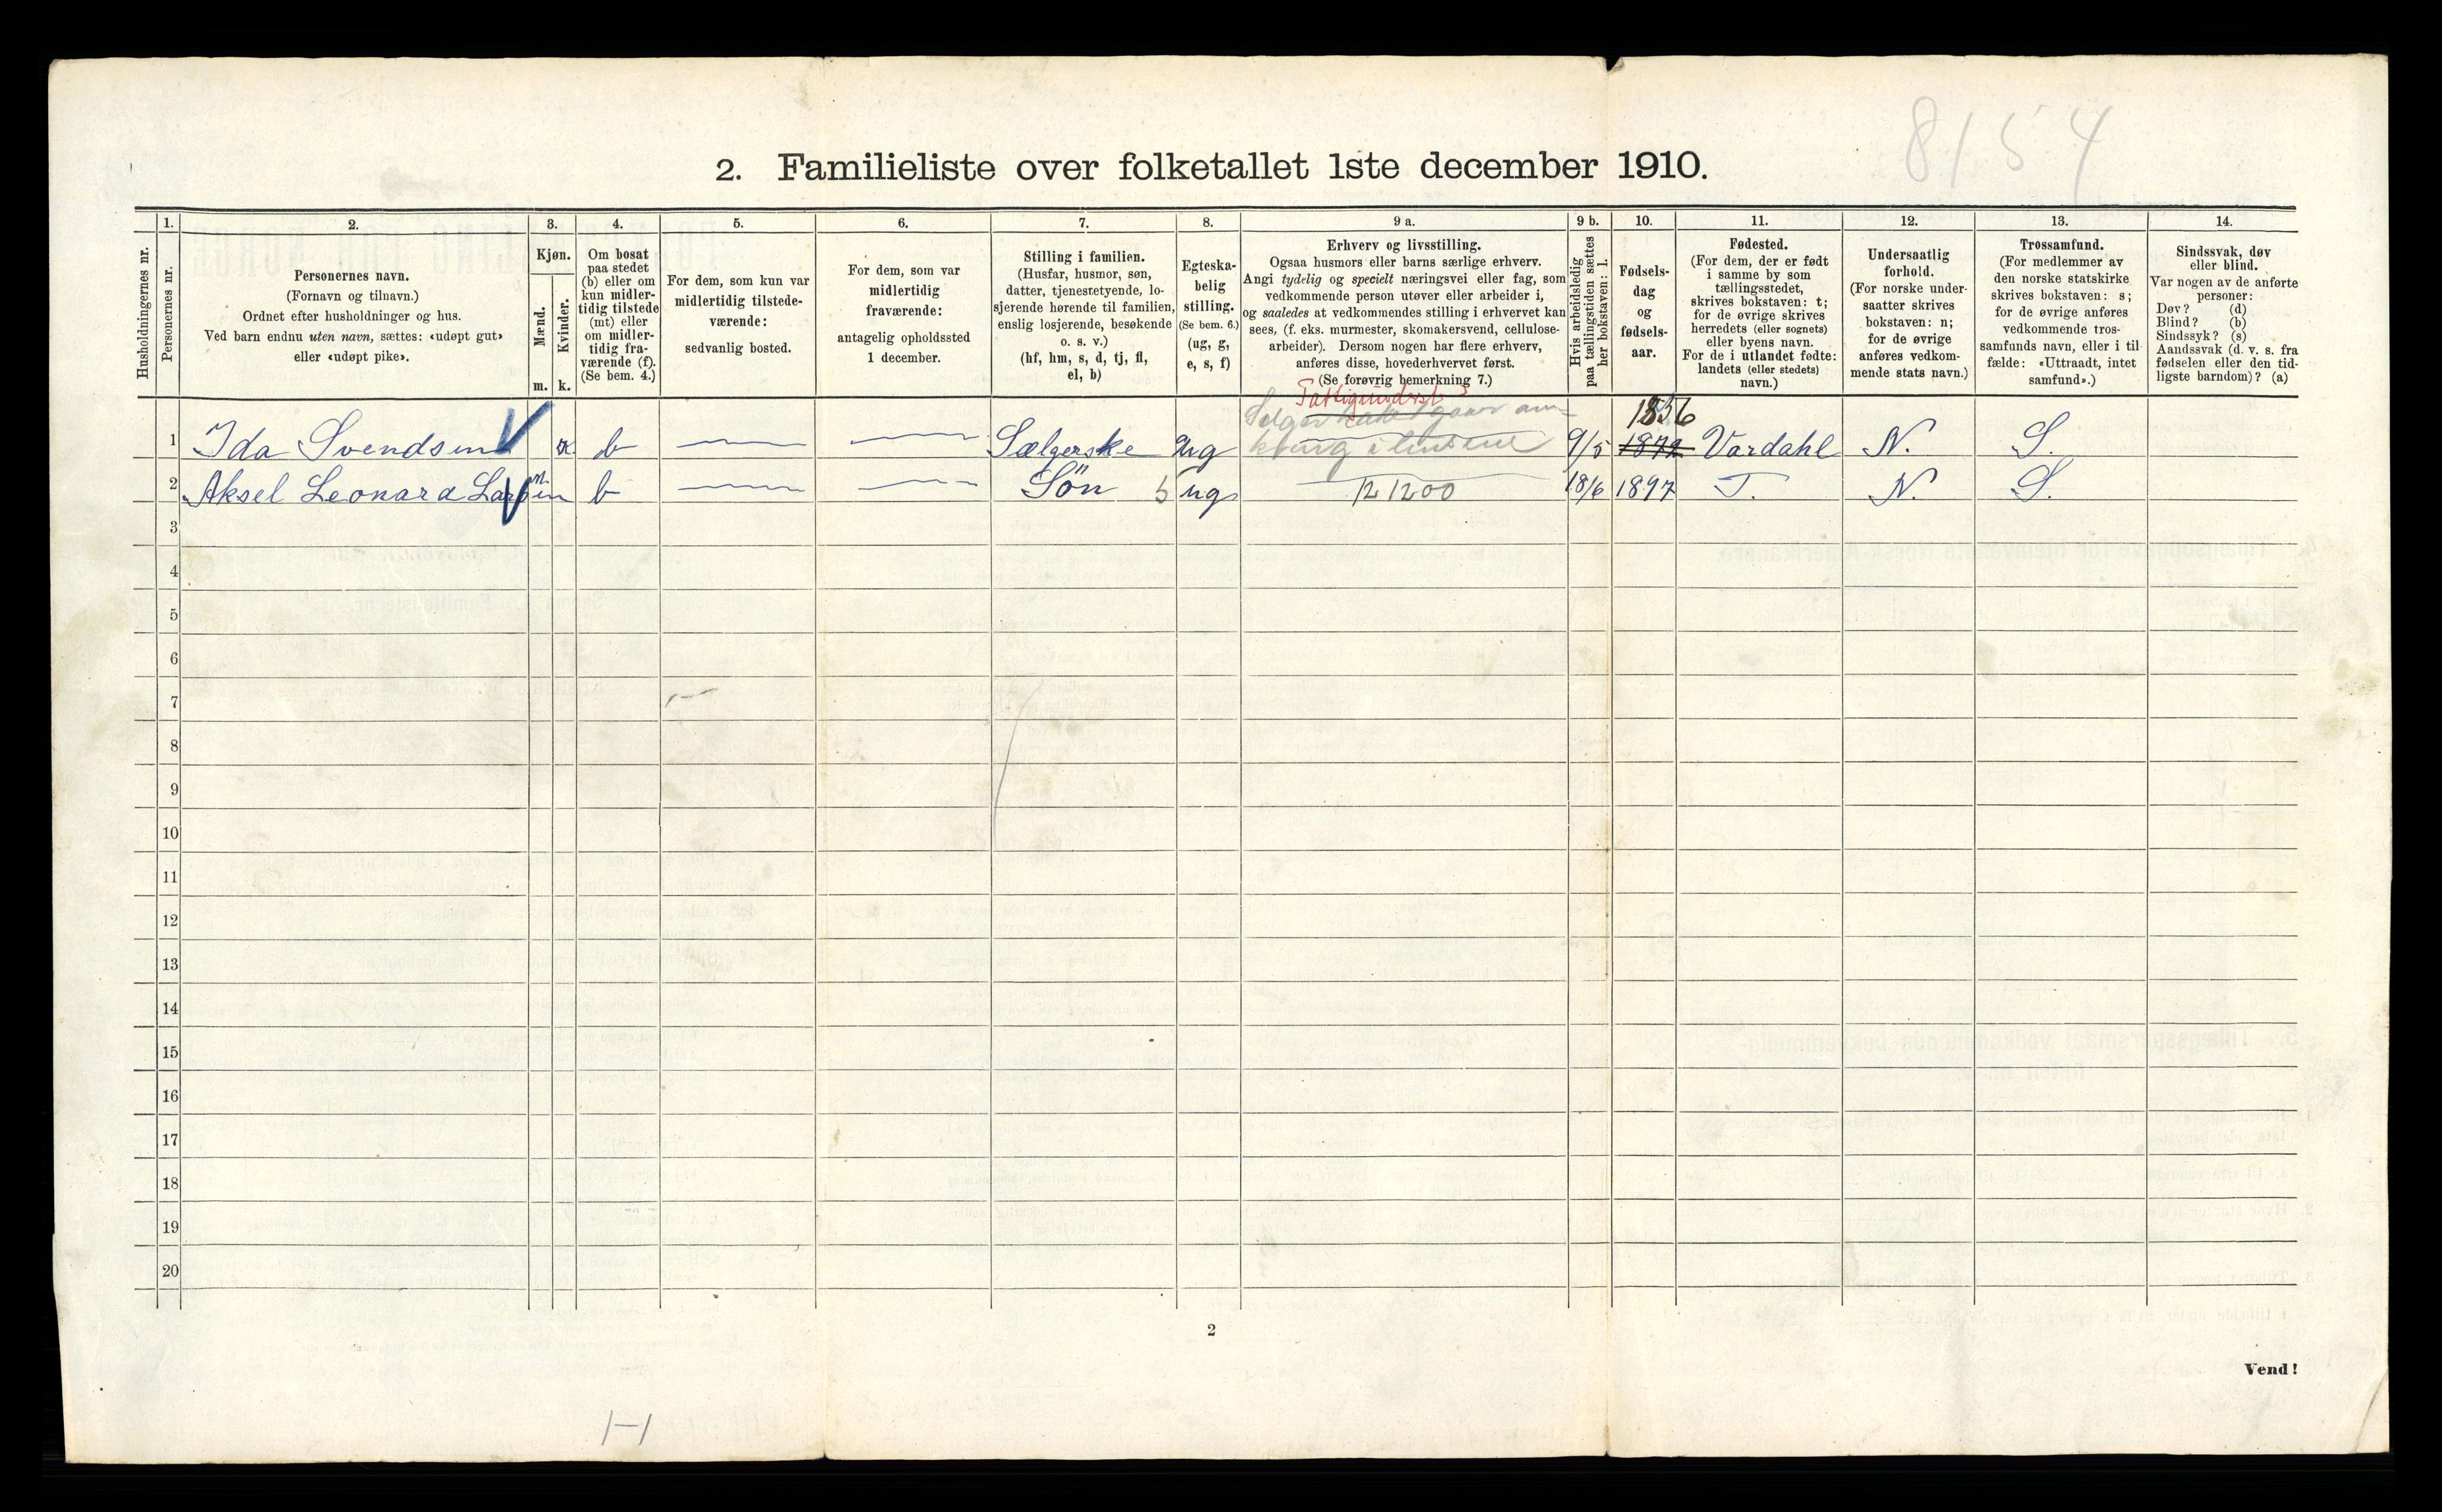 8154
2. Familieliste over folketallet 1ste december 1910.
Husholdningernes nr.
1.
Personernes nr.
2.
Personernes navn.
(Fornavn og tilnavn.)
Ordnet efter husholdninger og hus.
Ved barn endnu uten navn, sættes: «udøpt gut»
eller «udøpt pike».
3.
Kjøn.
Mænd.
Kvinder.
m. k.
4.
Om bosat
paa stedet
(b) eller om
kun midler-
tidig tilstede
(mt) eller
om midler-
tidig fra-
værende (f).
(Se bem. 4.)
5.
For dem, som kun var
midlertidig tilstede-
værende:
sedvanlig bosted.
6.
For dem, som var
midlertidig
fraværende:
antagelig opholdssted
1 december.
7.
Stilling i familien.
(Husfar, husmor, søn,
datter, tjenestetyende, lo-
sjerende hørende til familien,
enslig losjerende, besøkende
o. s. v.)
(hf, hm, s, d, tj, fl,
el, b)
8.
Egteska-
belig
stilling.
(Se bem. 6.)
(ug, g,
e, s, f)
9 a.
Erhverv og livsstilling.
Ogsaa husmors eller barns særlige erhverv.
Angi tydelig og specielt næringsvei eller fag, som
vedkommende person utøver eller arbeider i,
og saaledes at vedkommendes stilling i erhvervet kan
sees, (f. eks. murmester, skomakersvend, cellulose-
arbeider). Dersom nogen har flere erhverv,
anføres disse, hovederhvervet først.
(Se forøvrig bemerkning 7.)
9 b.
Hvis arbeidsledig
paa tællingstiden sættes
her bokstaven: l.
10.
Fødsels-
dag
og
fødsels-
aar.
11.
Fødested.
(For dem, der er født
i samme by som
tællingsstedet,
skrives bokstaven: t;
for de øvrige skrives
herredets (eller sognets)
eller byens navn.
For de i utlandet fødte:
landets (eller stedets)
navn.)
12.
Undersaatlig
forhold.
(For norske under-
saatter skrives
bokstaven: n;
for de øvrige
anføres vedkom-
mende stats navn.)
13.
Trossamfund.
(For medlemmer av
den norske statskirke
skrives bokstaven: s;
for de øvrige anføres
vedkommende tros-
samfunds navn, eller i til-
fælde: «Uttraadt, intet
samfund».)
14.
Sindssvak, døv
eller blind.
Var nogen av de anførte
personer:
Døv? (d)
Blind? (b)
Sindssyk? (s)
Aandssvak (d. v. s. fra
fødselen eller den tid-
ligste barndom)? (a)
1856
1 Ida Svendsen k b Sælgerske ug 9/5 1872 Vardahl N. S.
2 Aksel Leonard Larsen m b Søn s ug 21200 18/6 1897 T. N. S.
3
4
5
6
7
8
9
10
11
12
13
14
15
16
17
18
19
20
2
Vend!